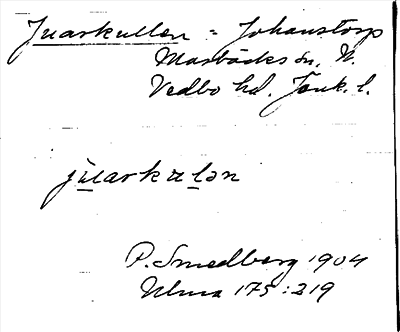 Juarkullen = Johanstorp
Marbäcks sn, N.
Vedbo hd. Jönk. l.
jùarkulən
P. Smedberg 1904
Ulma 175:219